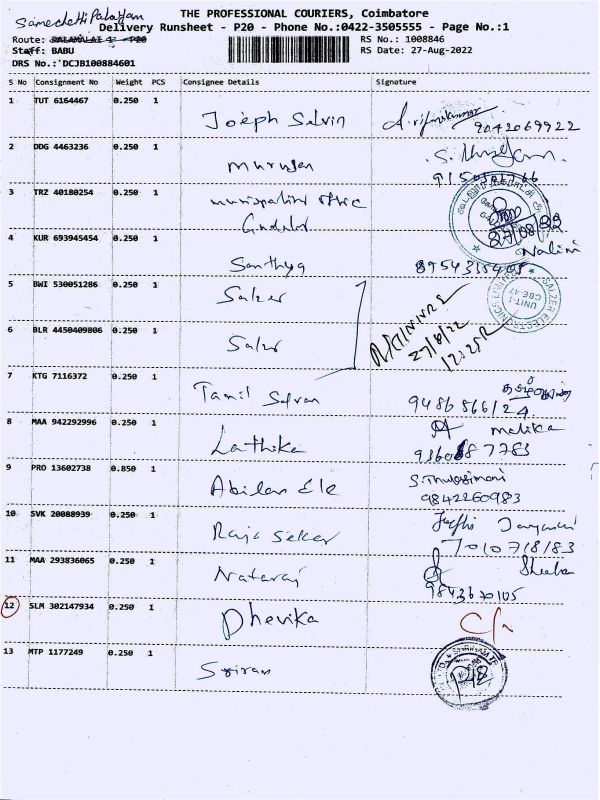 Samechetti Palayam
THE PROFESSIONAL COURIERS, Coimbatore
Delivery Runsheet - P20 - Phone No.:0422-3505555 - Page No.:1
Route: BALAMALAI - P20
RS No.: 1008846
Staff: BABU
RS Date: 27-Aug-2022
DRS No.:'DCJB100884601
S No Consignment No Weight PCS Consignee Details Signature
1 TUT 6164467 0.250 1 Joeph Selvin 9042069922
2 DDG 4463236 0.250 1 Murugan
3 TRZ 40180254 0.250 1 municipality office
Gudalur 27/08/22
4 KUR 693945454 0.250 1 Santhya Nalini
5 BWI 530051286 0.250 1 Salzer
SALZER ELECTRONICS LIMITED
UNIT-1
CBE-47
6 BLR 4450409806 0.250 1 Salzer 27/8/22
7 KTG 7116372 0.250 1 Tamil Selvan 9486866124
8 MAA 942292996 0.250 1 Lathika Malika
9 PRO 13602738 0.850 1 Abilan Ele S.Thulasimani
9842260983
10 SVK 20088939 0.250 1 Raja Seker
7010718183
11 MAA 293836065 0.250 1 Nataraj Sheeba
9843670105
12 SLM 302147934 0.250 1 Dhevika
13 MTP 1177249 0.250 1 Sriram